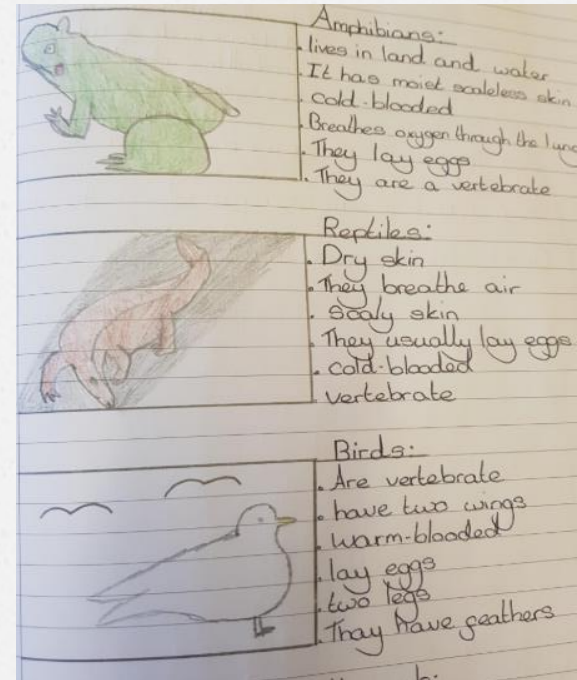 Amphibians:
. lives in land and water
. It has moist scaleless skin
. cold-blooded
. Breathes oxygen through the lung
. They lay eggs
. They are a vertebrate
Reptiles:
. Dry skin
. They breathe air
. Scaly skin
. They usually lay eggs
. cold-blooded
. vertebrate
Birds:
. Are vertebrate
. have two wings
. warm-blooded
. lay eggs
. two legs
. Thay have feathers